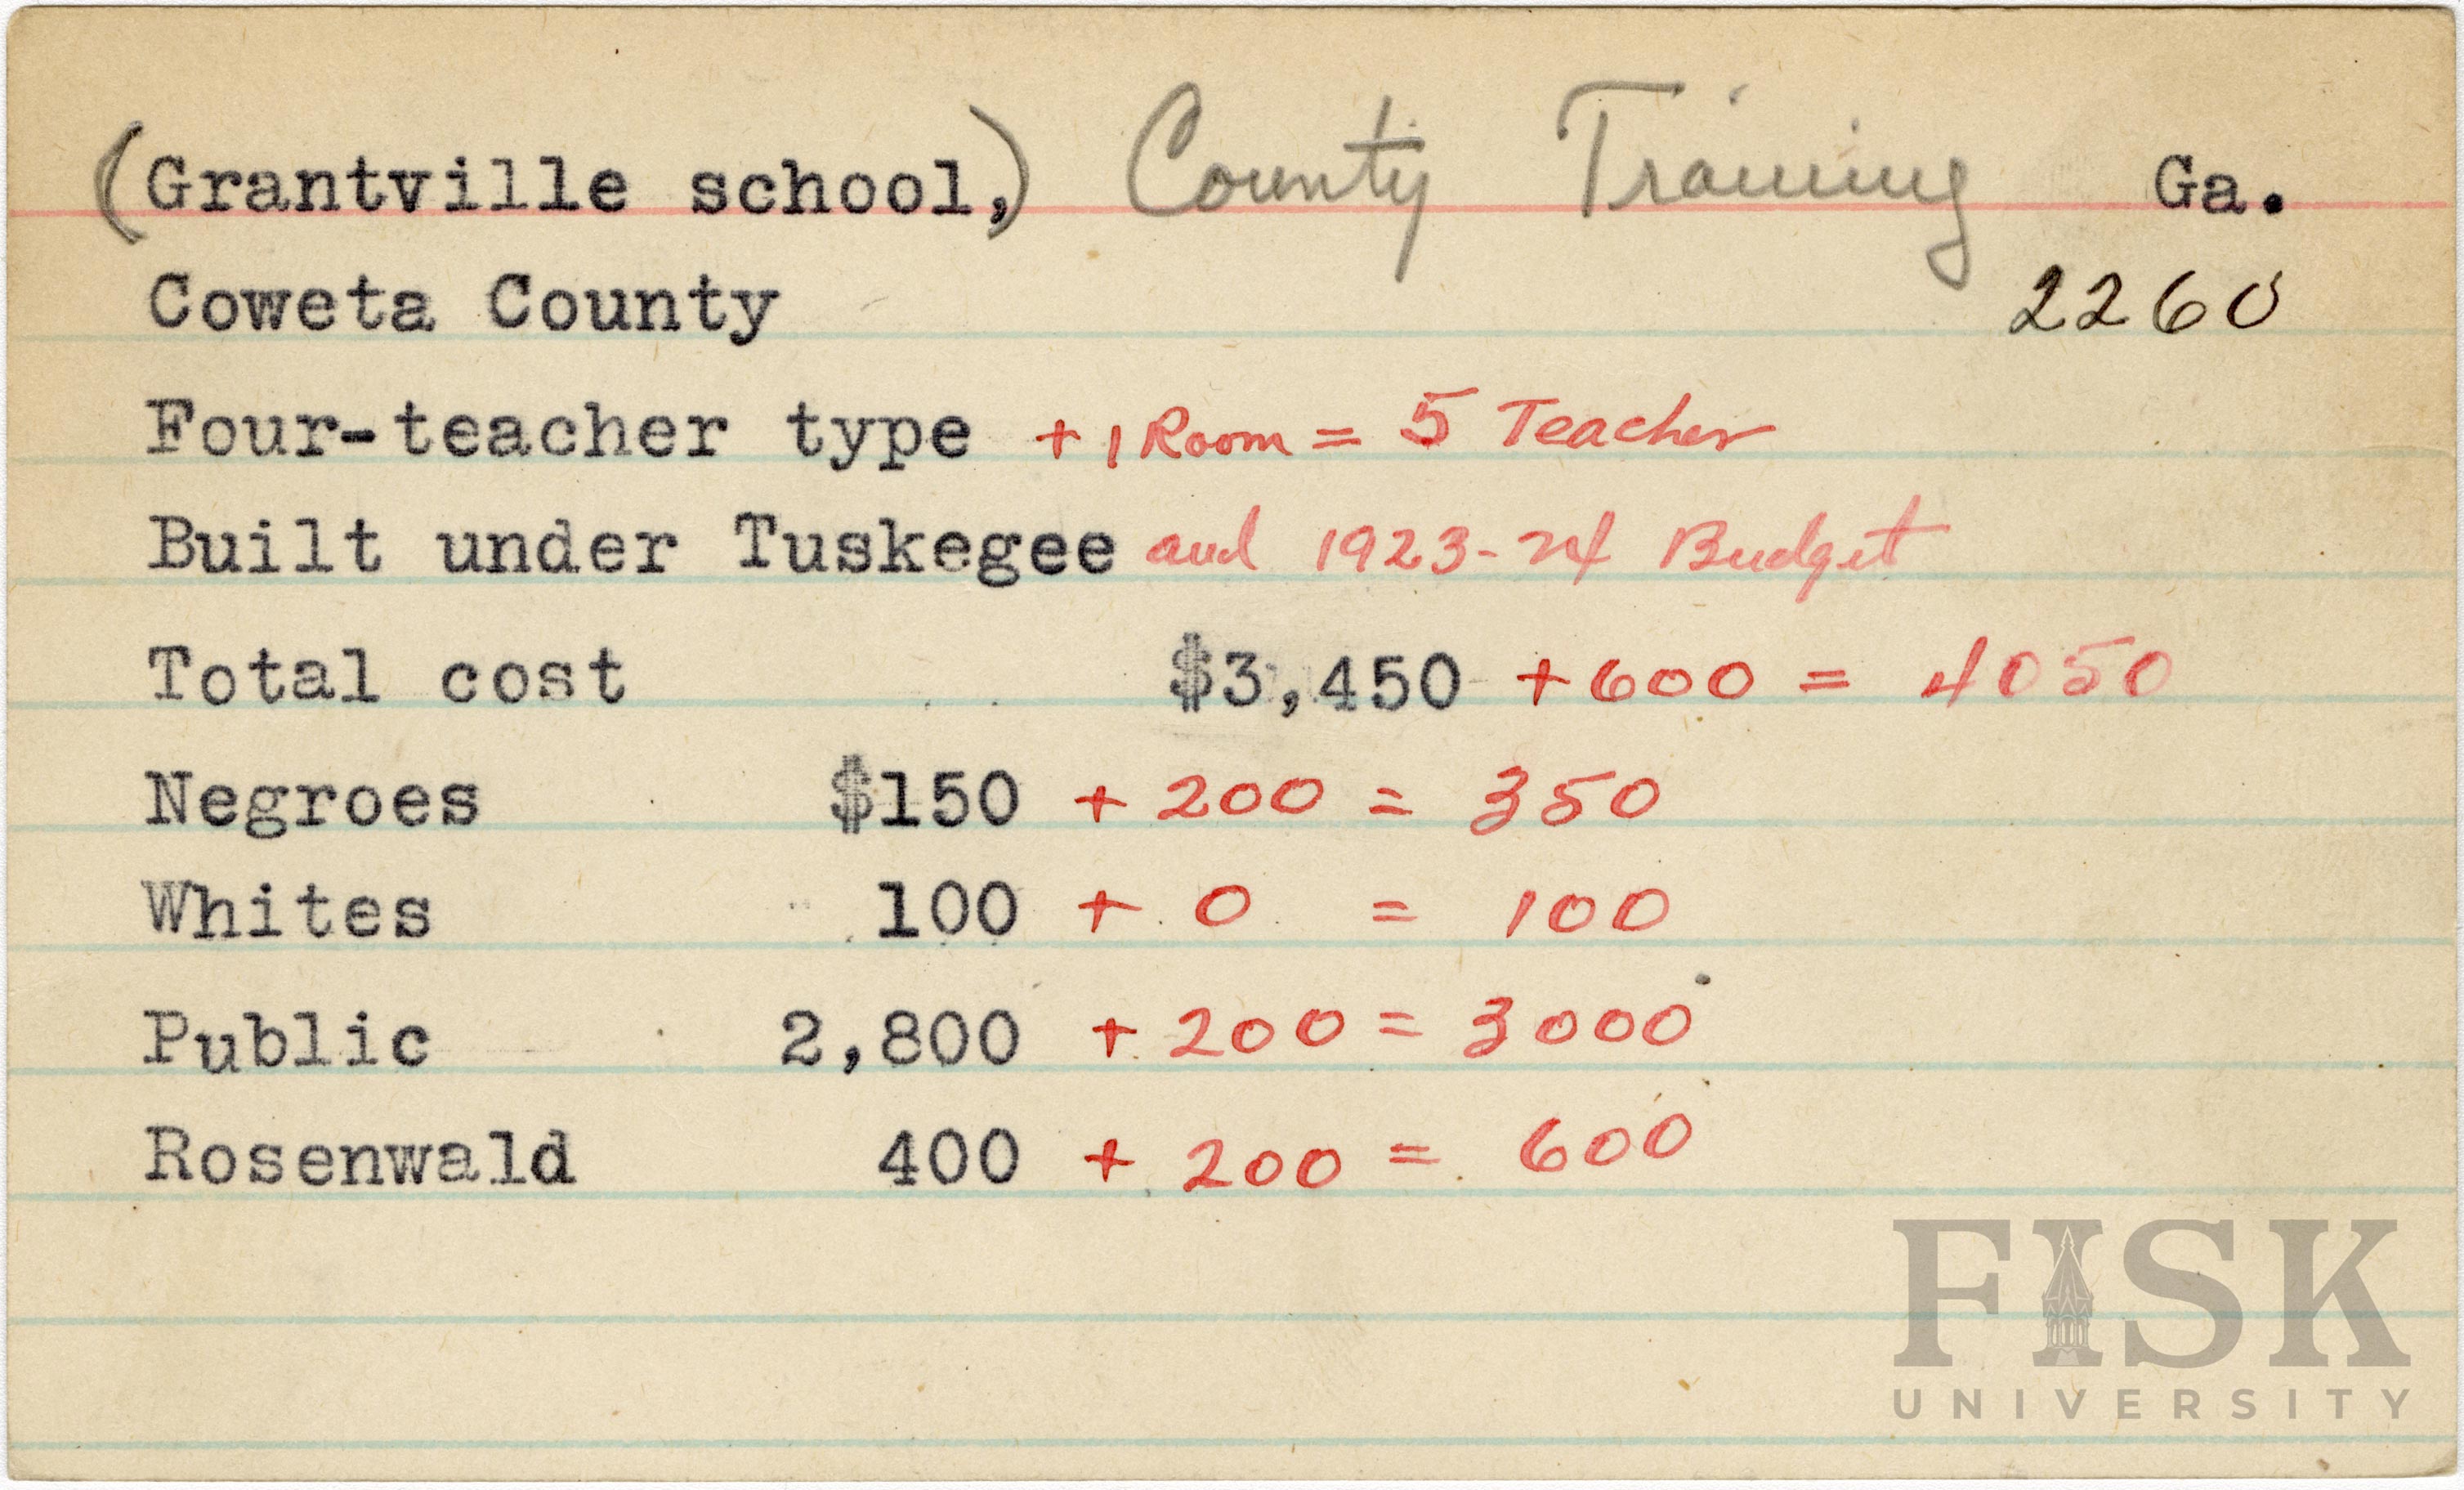 (Grantville school,) County Training Ga.
Coweta County 2260
Four-teacher type + 1 Room = 5 Teacher
Built under Tuskegee and 1923-24 Budget
Total cost $3,450 + 600 = 4050
Negroes $150 + 200 = 350
Whites 100 + 0 = 100
Public 2,800 + 200 = 3000
Rosenwald 400 + 200 = 600
FISK
UNIVERSITY